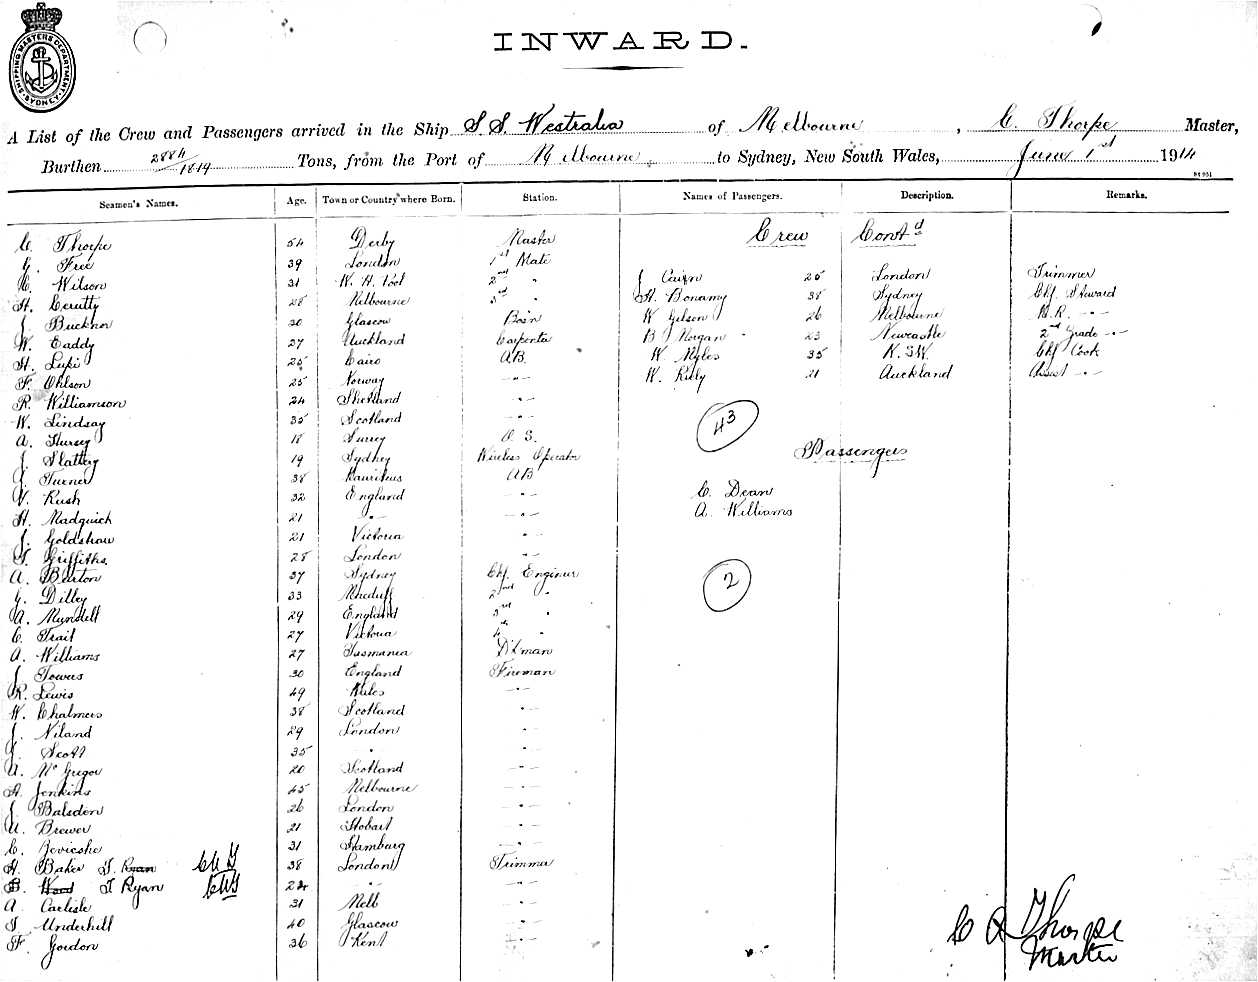 SHIPPING MASTERS DEPARTMENT SYDNEY
INWARD.
A List of the Crew and Passengers arrived in the Ship S.S. Westralia of Melbourne, C. Thorpe Master,
Burthen 2884/1819 Tons, from the Port of Melbourne to Sydney, New South Wales, June 1st 1914
Seamen's Names. Age. Town or Country where Born. Station. Names of Passengers. Description. Remarks.
C. Thorpe 54 Derby Master
G. Free 39 London 1st Mate
C. Wilson 31 W. H. Pool 2nd "
H. Cerutty 28 Melbourne 3rd "
J. Buckner 30 Glascow Bos'n
W. Eaddy 27 Auckland Carpenter
H. Lupi 25 Cairo A.B.
F. Ohlson 25 Norway -"-
R. Williamson 24 Shetland -"-
W. Lindsay 35 Scotland -"-
A. Hursey 18 Surrey O. S.
J. Slattery 19 Sydney Wireless Operator
J. Turner 38 Mauritius AB
V. Rush 32 England -"-
H. Madquick 21 -"- -"-
J. Goldshaw 21 Victoria -"-
T. Griffiths 28 London -"-
A. Barton 37 Sydney Chf. Engineer
G. Dilley 33 2nd "
A. Mundell 29 England 3rd "
C. Trait 27 Victoria 4th "
A. Williams 27 Tasmania D'kman
J. Towers 30 England Fireman
R. Lewis 49 Wales -"-
W. Chalmers 38 Scotland -"-
J. Niland 29 London -"-
J. Scott 35 " -"-
A. McGregor 20 Scotland -"-
A. Jenkins 45 Melbourne -"-
J. Balsden 26 London -"-
A. Brewer 21 Hobart -"-
C. 31 Hamburg -"-
H. Baker T. Ryan 38 London Trimmer
B. Wood T Ryan 24 -"- -"-
A. Carlisle 31 Melb -"-
T. Underhill 40 Glascow -"-
F. Gordon 36 Kent -"-
Crew Contd
J. Cairn 25 London Trimmer
H. Bonamy 38 Sydney Chf. Steward
W. Gilson 26 Melbourne B.R. -"-
B. Morgan 23 Newcastle 2nd Grade -"-
W. Myles 35 N.S.W. Chf Cook
W. Rily 21 Auckland Assist -"-
43
Passengers
C. Dean
A. Williams
2
C R Thorpe
Master